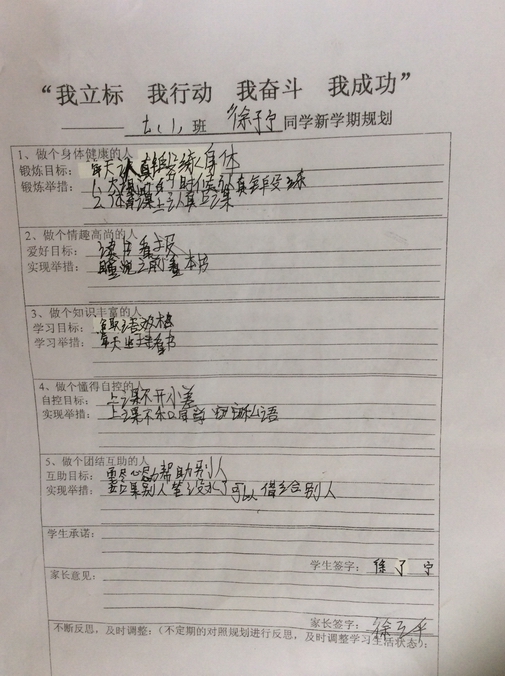 “我立标 我行动 我奋斗 我成功”
七(1)班 徐子宁 同学新学期规划
1、做个身体健康的人
锻炼目标：每天认真锻练身体
锻炼举措：1、大课间的时候认真
2、体育课上认真上课
2、做个情趣高尚的人
爱好目标：读书看报
实现举措：睡觉之前看本书
3、做个知识丰富的人
学习目标：争取语
学习举措：每天坚持看书
4、做个懂得自控的人
自控目标：上课不开小差
实现举措：上课不和同学窃窃私语
5、做个团结互助的人
互助目标：要尽心尽力帮助别人
实现举措：如果别人笔没水了可以借给别人
学生承诺：
学生签字：徐子宁
家长意见：
家长签字：徐
不断反思，及时调整：（不定期的对照规划进行反思，及时调整学习生活状态）：